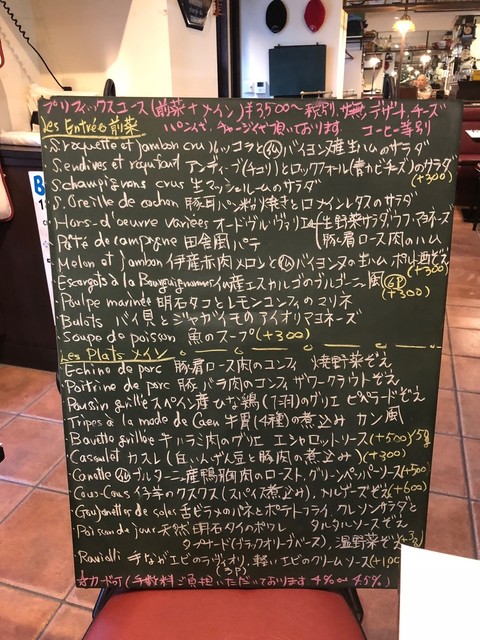 プリフィックスコース(前菜+メイン)¥3500〜 税別、サ無、デザート、チーズ
パン代、チャージ代頂いております コーヒー等別
Les Entrées 前菜
S. roquette et jambon cru ルッコラと仏バイヨンヌ産生ハムのサラダ
S. endives et roquefort アンディーブ(チコリ)とロックフォール(青カビチーズ)のサラダ
(+300)
S. champignons crus 生マッシュルームのサラダ
S. Oreille de cochon 豚耳パン粉焼きとロメインレタスのサラダ
Hors-d'oeuvre variees オードヴルヴァリエ(生野菜サラダ、ウフマヨネーズ
豚肩ロース肉のハム
Pâté de campagne 田舎風パテ
Melon et jambon 伊産赤肉メロンと仏バイヨンヌの生ハム ポルト酒ぞえ
(+300)
Escargots à la Bourguignonne 仏産エスカルゴのブルゴーニュ風 6P
(+300)
Poulpe marinée 明石タコとレモンコンフィのマリネ
Bulots バイ貝とジャガイモのアイオリマヨネーズ
Soupe de poisson 魚のスープ(+300)
Les Plats メイン
Echine de porc 豚肩ロース肉のコンフィ 焼野菜ぞえ
Poitrine de porc 豚バラ肉のコンフィ ザワークラウトぞえ
Pousin guillé スペイン産ひな鶏(1羽)のグリエ ピペラードぞえ
Tripes à la mode de Caen 牛胃(4種)の煮込み カン風
Bavette grillée 牛ハラミ肉のグリエ エシャロットソース(+500)
Cassoulet カスレ(白いんげん豆と豚肉の煮込み)(+300)
Canette 仏ブルターニュ産鴨胸肉のロースト、グリーンペッパーソース(+500)
Cous-Cous 仔羊のクスクス(スパイス煮込み)、メルゲーズぞえ(+600)
Goujonettes de soles 舌ビラメのパネとポテトフライ、クレソンサラダと
タルタルソースぞえ
Poisson du jour 天然明石タイのポワレ
タプナード(ブラックオリーブベース)、温野菜ぞえ
Ravioli 手長エビのラヴィオリ、軽いエビのクリームソース
(3P)
☆カード可(手数料ご負担いただいております 4%〜4.5%)